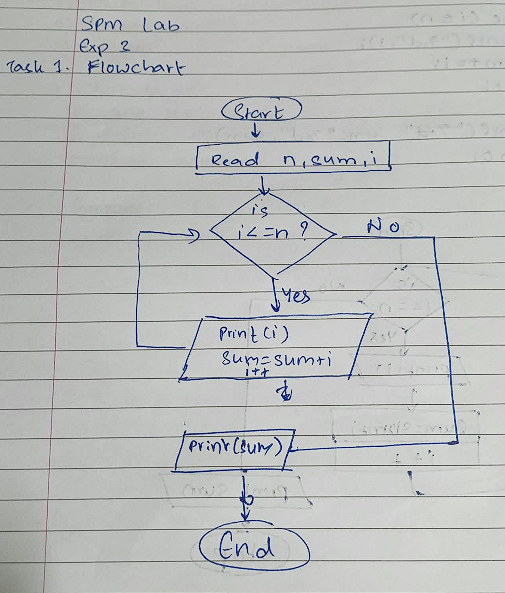 SPM Lab
Exp 3
Task 1. Flowchart
Start
Read n, sum, i
is
i<=n ?
No
Yes
Print(i)
Sum=sum+i
i++
Print(sum)
End